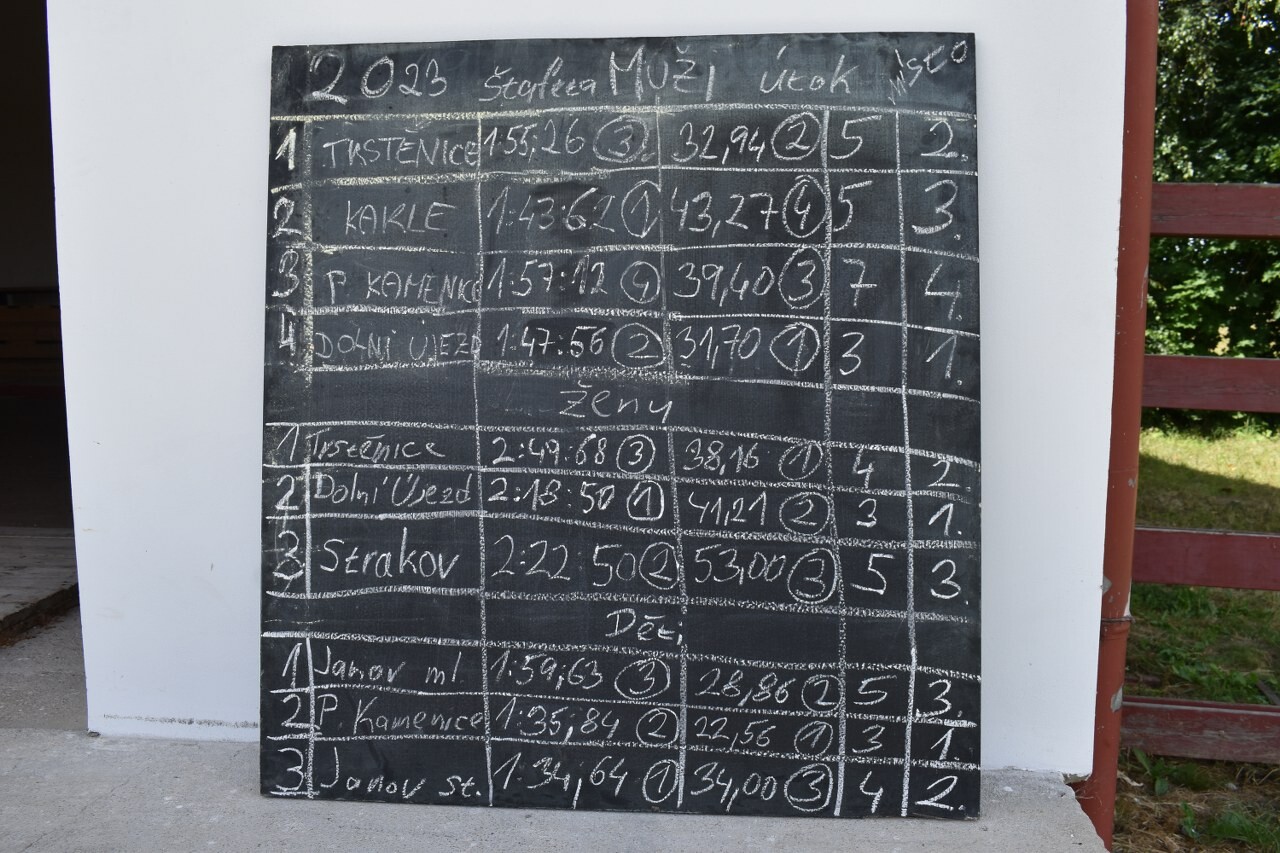 2023 Štafeta MUŽI útok Místo
1 TRSTĚNICE 1:55,26 3. 32,94 2 5 2.
2 KAKLE 1:43:62 1 43,27 4 5 3.
3 P. KAMENICE 1:57:12 4 39,40 3 7 4.
4 DOLNI UJEZD 1:47:56 2 31,70 1 3 1.
Ženy
1 Trstěnice 2:49:68 3 38,16 1 4 2.
2 Dolní Újezd 2:18:50 1 41,21 2 3 1.
3 Strakov 2:22 50 2 53,00 3 5 3.
Děti
1 Janov ml. 1:59,63 3 28,86 2 5 3.
2 P. Kamenice 1:35,84 2 22,56 1 3 1.
3 Janov st. 1:34,64 1 34,00 3 4 2.